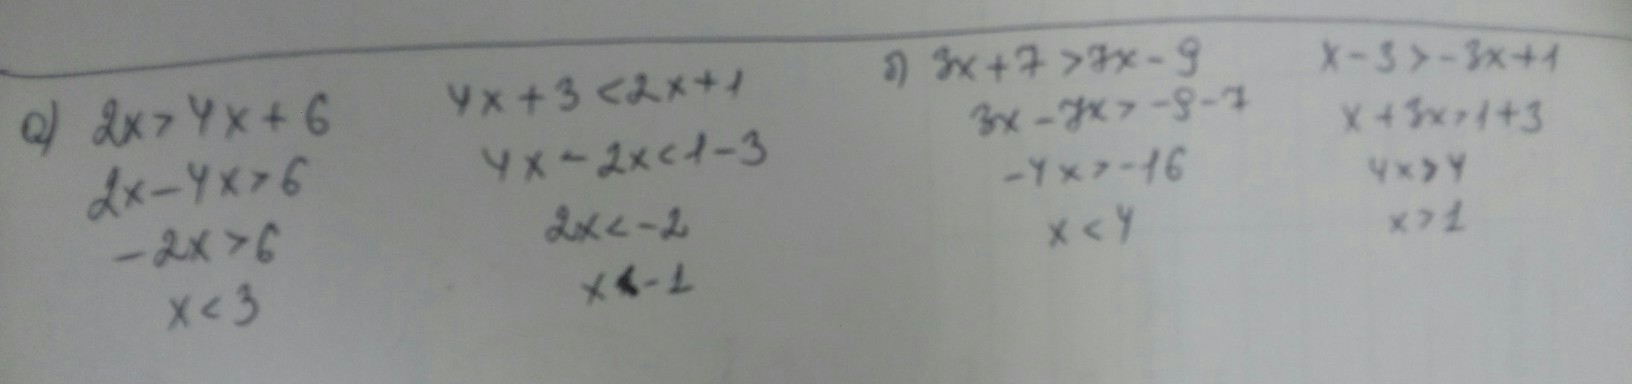 а) 2x > 4x + 6
2x - 4x > 6
- 2x > 6
x < 3
4x + 3 < 2x + 1
4x - 2x < 1 - 3
2x < - 2
x < - 1
б) 3x + 7 > 7x - 9
3x - 7x > - 9 - 7
- 4x > - 16
x < 4
x - 3 > - 3x + 1
x + 3x > 1 + 3
4x > 4
x > 1